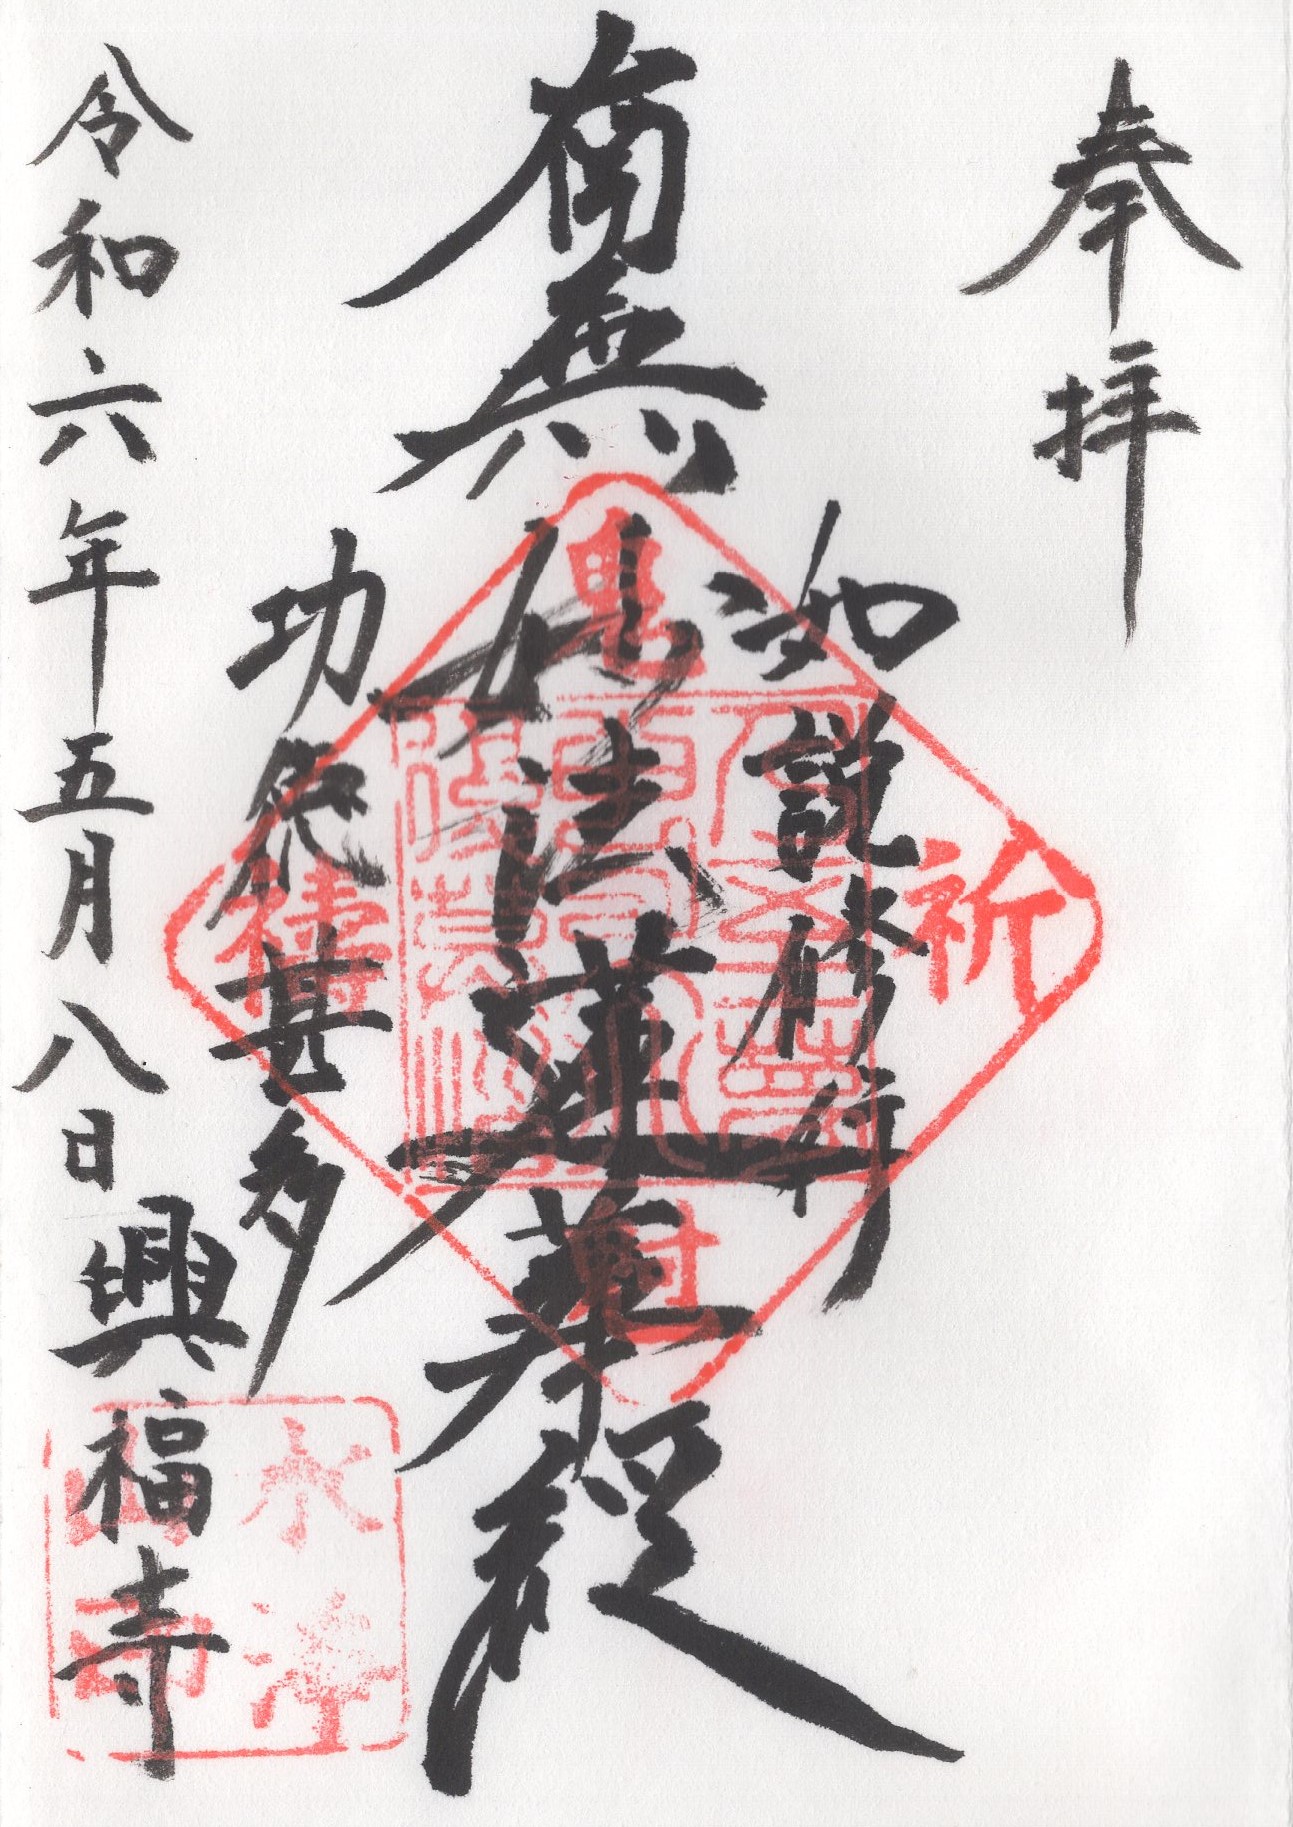 奉拝
如説修行
南無妙法蓮華経
功徳甚多
令和六年五月八日
興福寺
祈禱